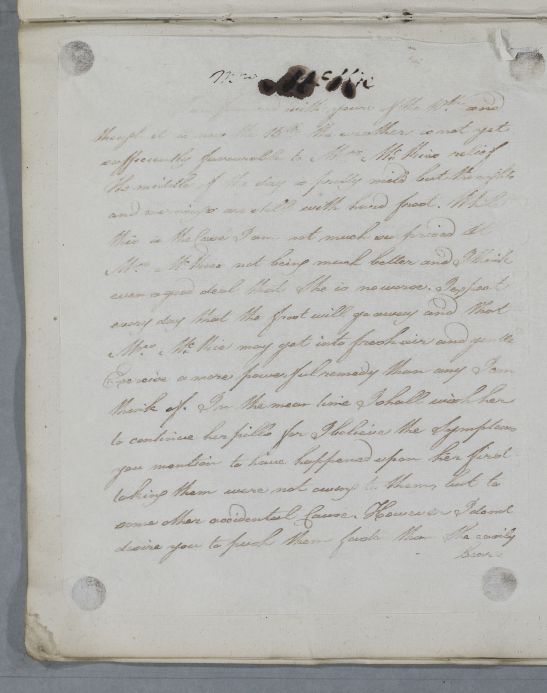 Mrs McKie
with yours of the 12th and
though it is now the 15th the weather is not yet
sufficiently favourable to Mrs McKies relief
the middle of the day is pretty mild but the nights
and mornings are still with hard frost. While
this is the Case I am not much surprised at
Mrs McKies not being much better and I think
even a good deal that She is no worse. I expect
every day that the frost will go away and that
Mrs McKie may get into fresh air and gentle
Exercise a more powerful remedy than any I can
think of. In the mean time I shall wish her
to continue her pills for I believe the Symptoms
you mention to have happened upon her first
taking them were not owing to them but to
some other accidental Cause. However I dont
desire you to push them faster than She easily
bears